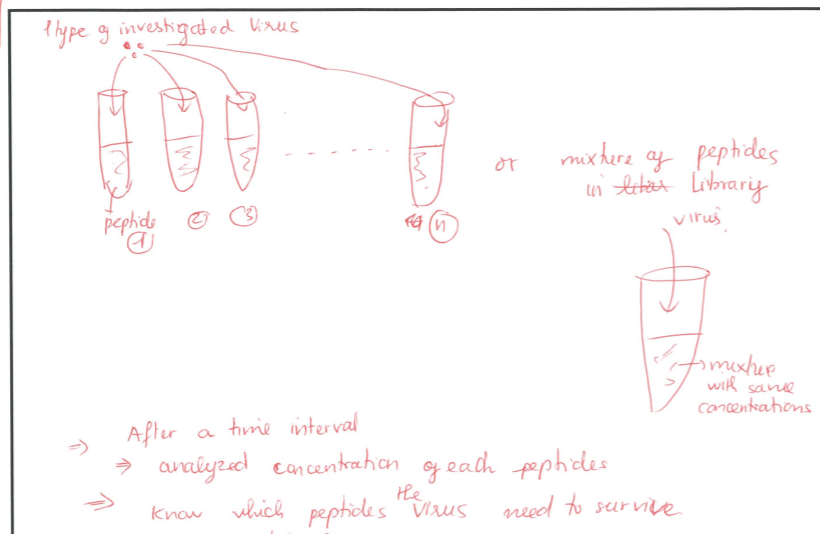 1type of investigated Virus
peptide
1 2 3 n
or mixture of peptides
in Library
virus
mixture
with same
concentrations
⇒ After a time interval
⇒ analyzed concentration of each peptides
⇒ Know which peptides the Virus need to survive